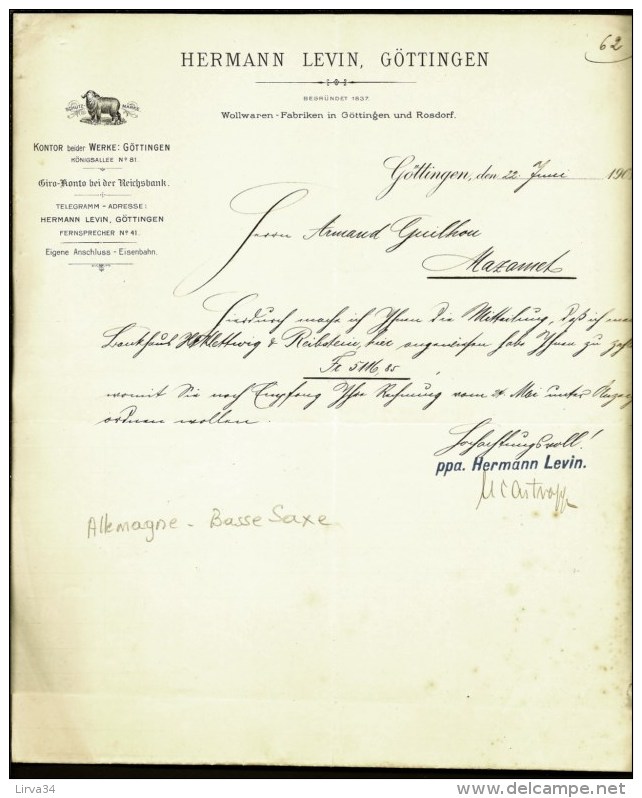 62
HERMANN LEVIN, GÖTTINGEN
BEGRÜNDET 1837.
Wollwaren-Fabriken in Göttingen und Rosdorf.
SCHUTZ MARKE
KONTOR beider WERKE: GÖTTINGEN
KÖNIGSALLEE Nº 81.
Giro-Konto bei der Reichsbank.
TELEGRAMM-ADRESSE:
HERMANN LEVIN, GÖTTINGEN
FERNSPRECHER Nº 41.
Eigene Anschluss-Eisenbahn.
Göttingen, den 22. Juni 190
Herrn Armand Guilhou
Mazamet
Hierdurch mache ich Ihnen die Mitteilung, daß ich
Bankhaus Klettwig & Reibstein, hier, angewiesen habe Ihnen zu
Fr 5116 85
womit Sie nach Empfang Ihre Rechnung vom 24 Mai unter
ordnen wollen.
Hochachtungsvoll!
ppa. Hermann Levin.
Allemagne - Basse Saxe
Lirva34
delcampe.net